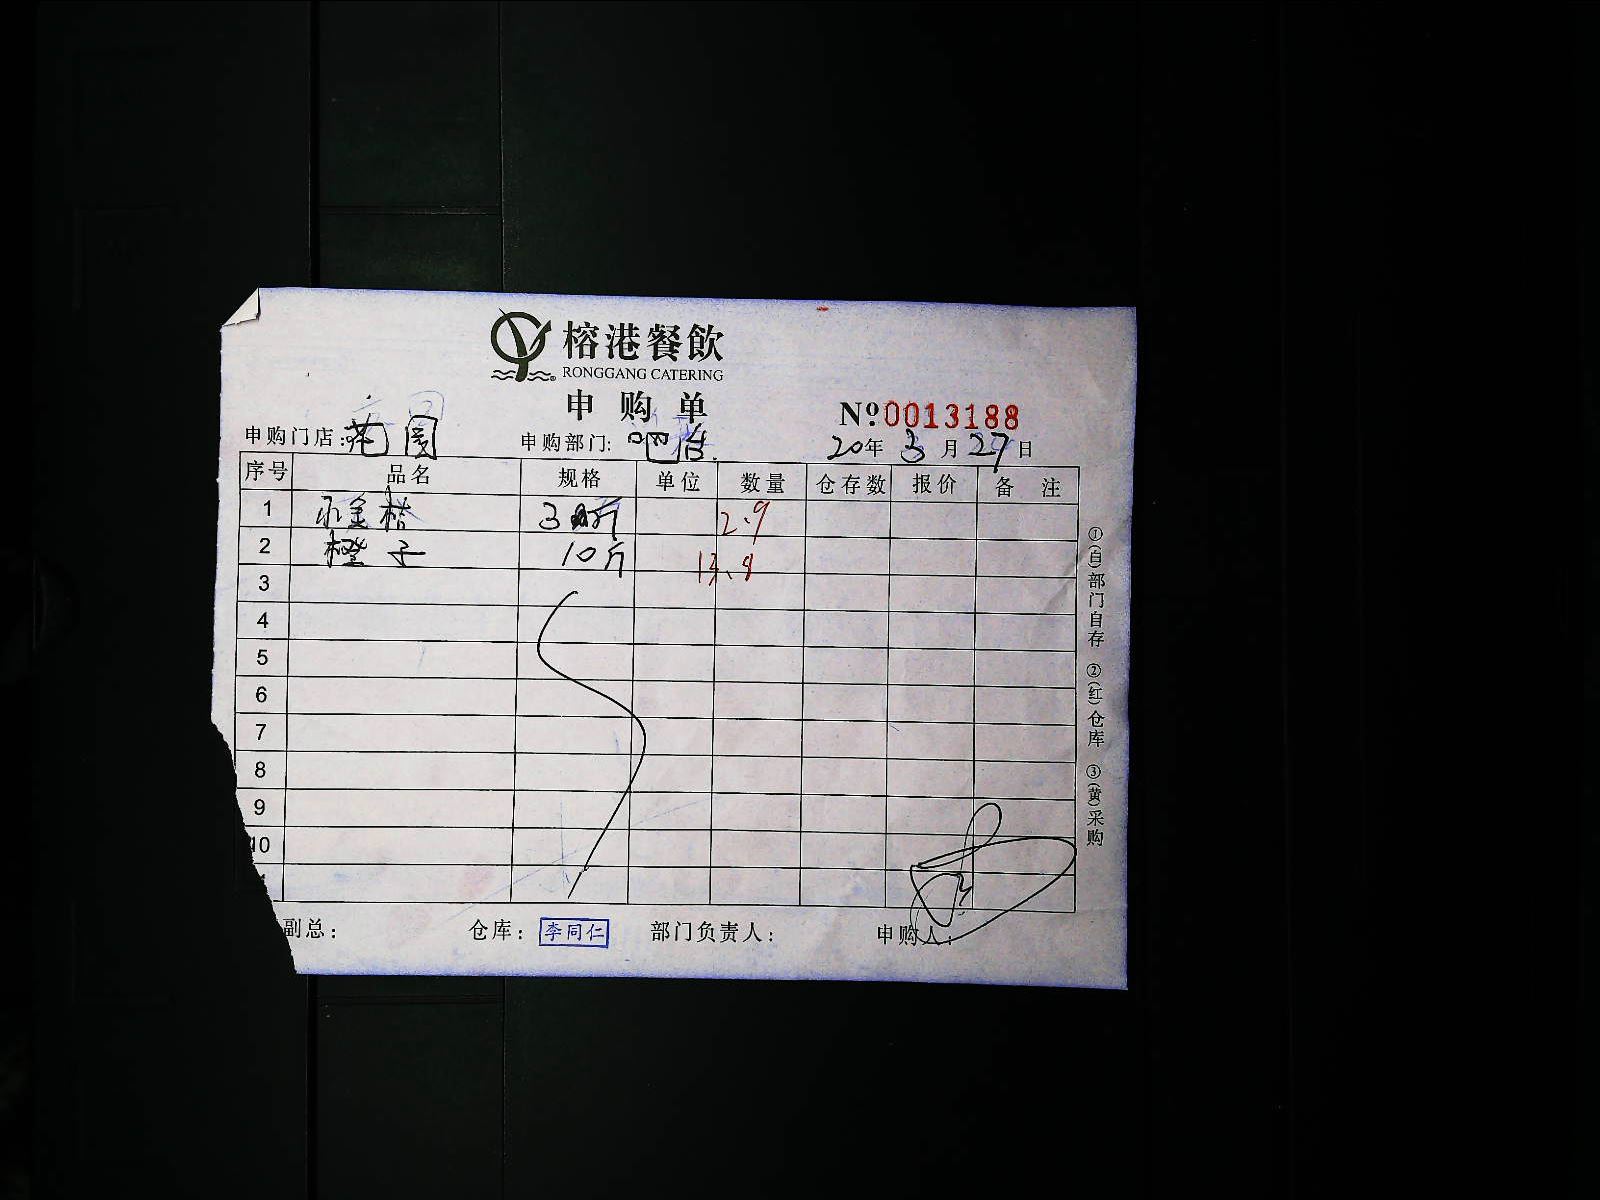 榕港餐飲
RONGGANG CATERING
申购单
Nº.0013188
申购门店:花园 申购部门:吧台. 20年3月27日
序号 品名 规格 单位 数量 仓存数 报价 备注
1 小金桔 3斤 2.9
2 橙子 10斤
3
4
5
6
7
8
9
10
副总: 仓库: 李同仁 部门负责人: 申购人:
①(白)部门自存 ②(红)仓库 ③(黄)采购